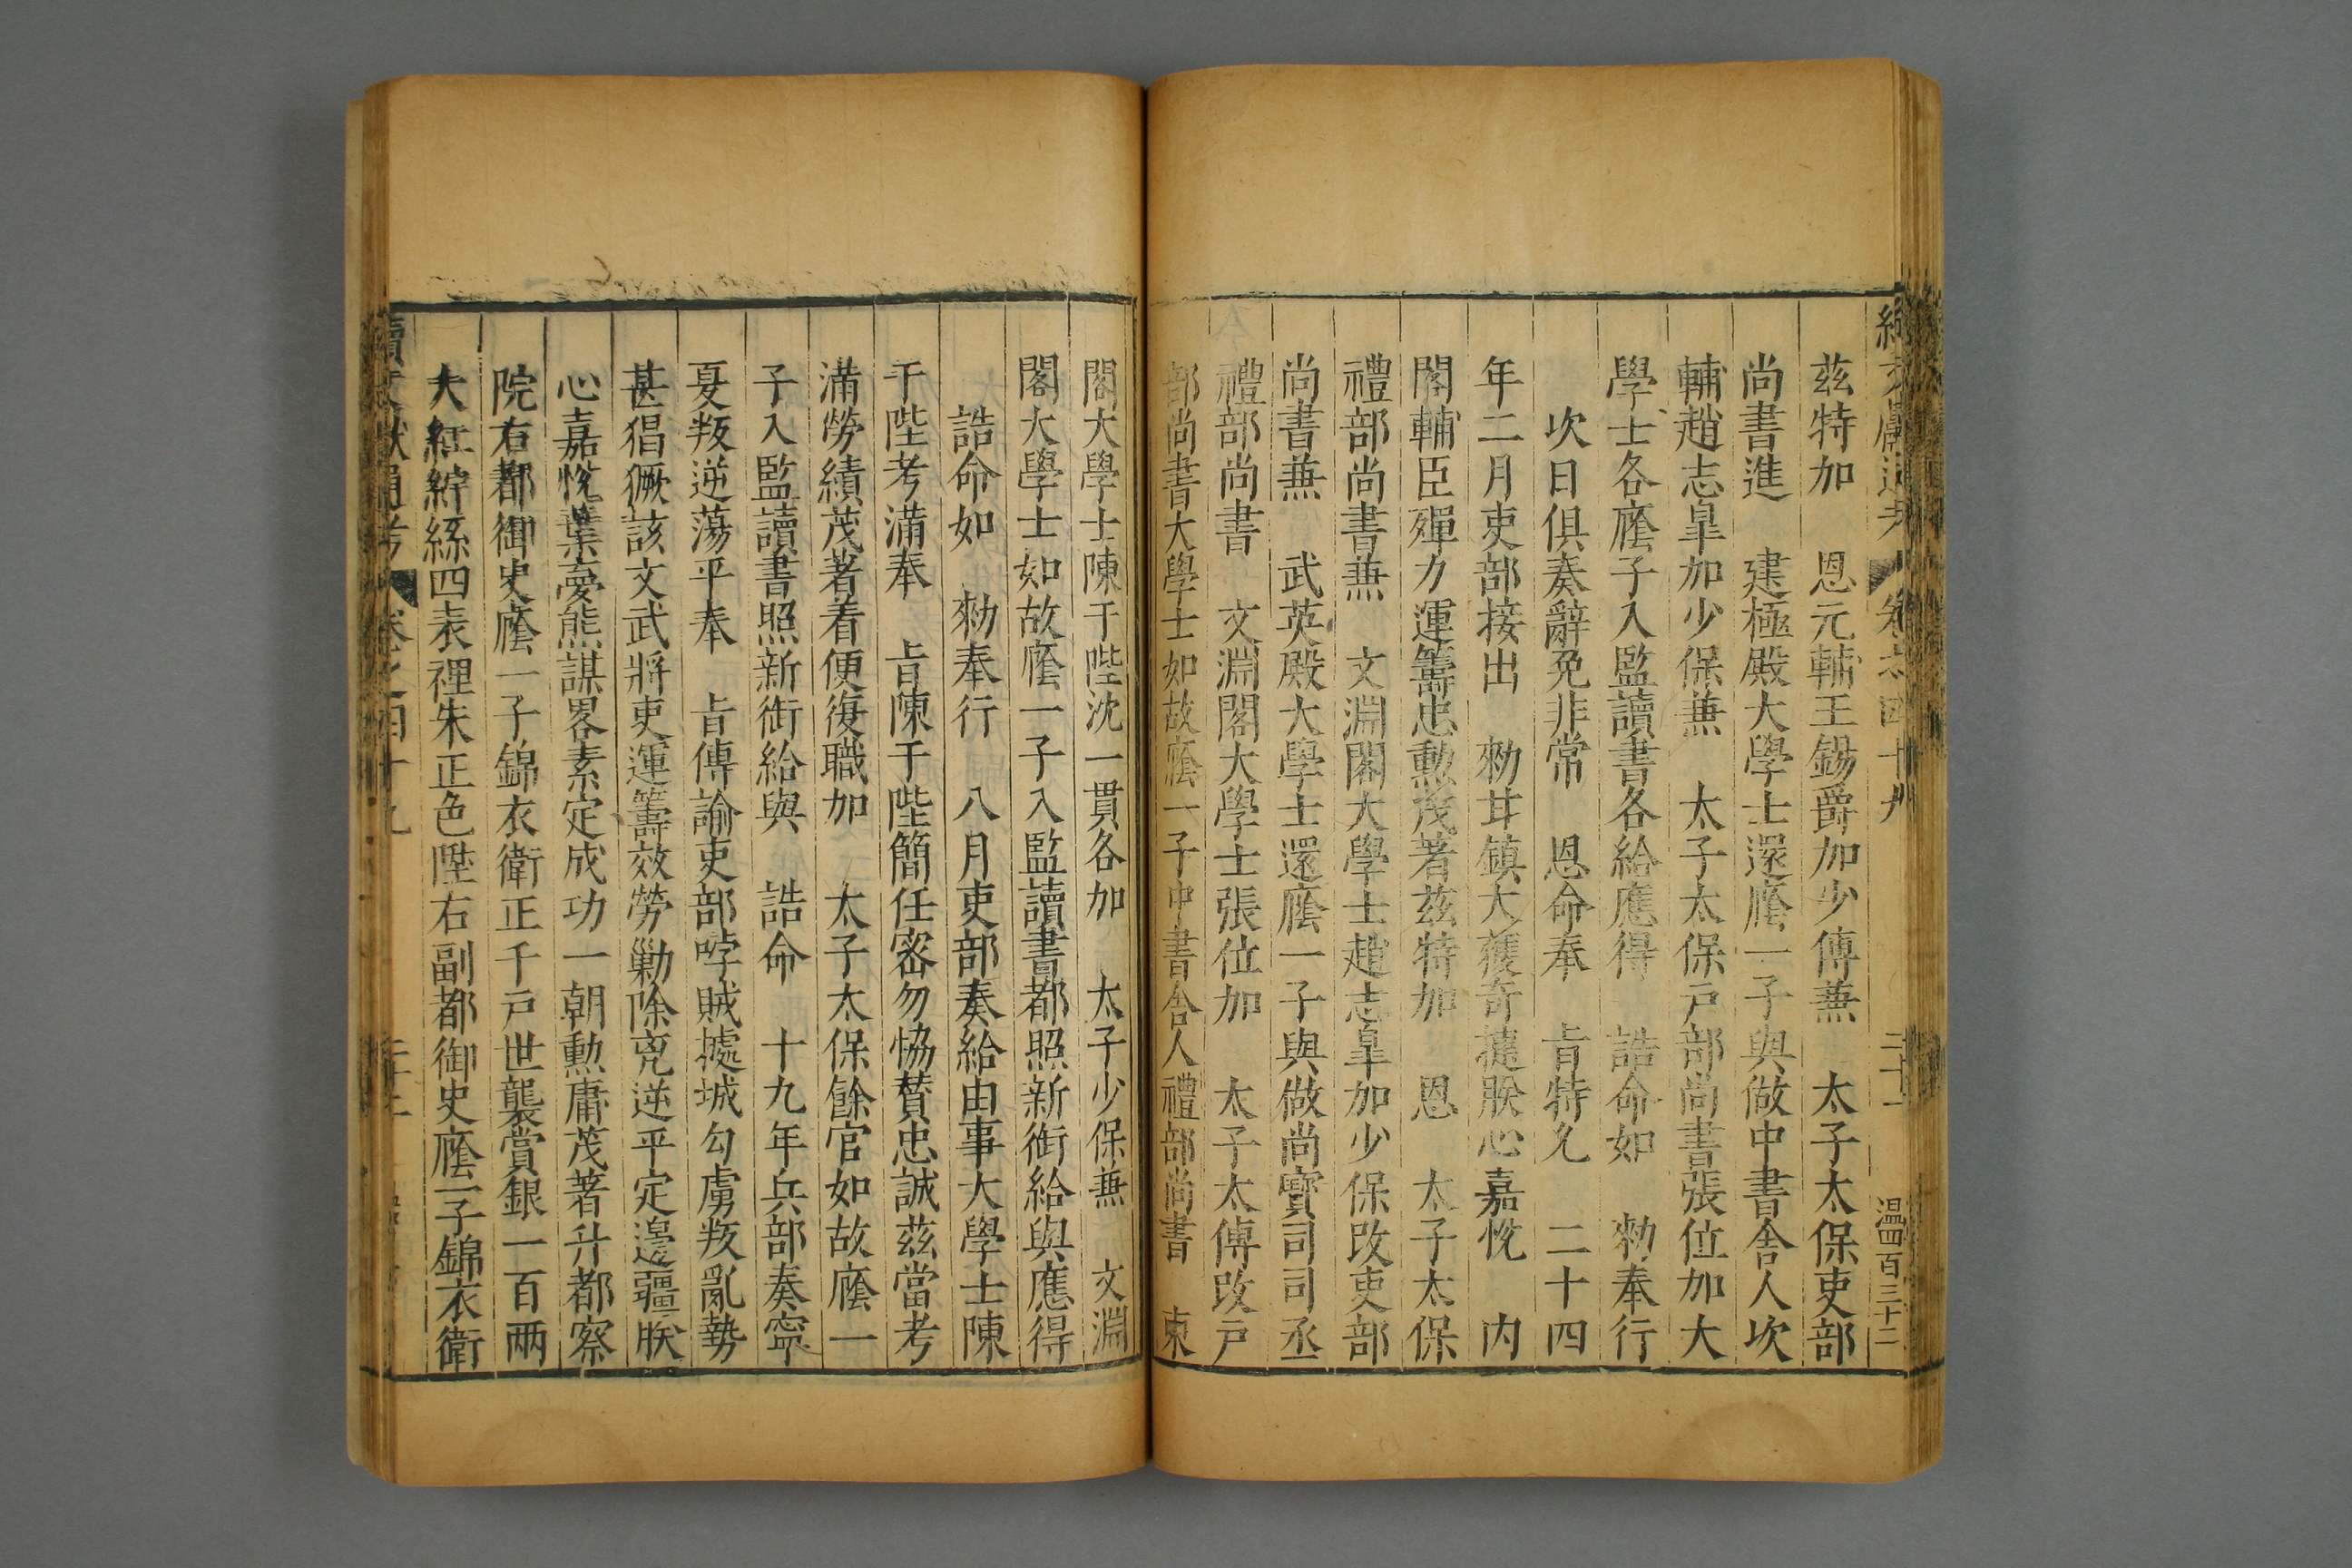 續文獻通考 卷之四十九 三十一 溫四百三十二
茲特加 恩元輔王錫爵加少傅兼 太子太保吏部
尚書進 建極殿大學士還廕一子與做中書舍人次
輔趙志皐加少保兼 太子太保戶部尚書張位加大
學士各廕子入監讀書各給應得 誥命如 勑奉行
次日俱奏辭免非常 恩命奉 旨特允 二十四
年二月吏部接出 勑甘鎮大獲竒捷朕心嘉悅 內
閣輔臣殫力運籌忠勲茂著茲特加 恩 太子太保
禮部尚書兼 文淵閣大學士趙志皐加少保改吏部
尚書兼 武英殿大學士還廕一子與做尚寶司司丞
禮部尚書 文淵閣大學士張位加 太子太傅改戶
部尚書大學士如故廕一子中書舍人禮部尚書 東
閣大學士陳于陛沈一貫各加 太子少保兼 文淵
閣大學士如故廕一子入監讀書都照新銜給與應得
誥命如 勑奉行 八月吏部奏給由事大學士陳
于陛考滿奉 旨陳于陛簡任密勿恊賛忠誠茲當考
滿勞績茂著着便復職加 太子太保餘官如故廕一
子入監讀書照新銜給與 誥命 十九年兵部奏寧
夏叛逆蕩平奉 旨傳諭吏部哱賊㨿城勾虜叛亂勢
甚猖獗該文武將吏運籌效勞勦除兇逆平定邊疆朕
心嘉悅葉夢熊謀畧素定成功一朝勲庸茂著升都察
院右都御史廕一子錦衣衛正千戶世襲賞銀一百兩
大紅紵絲四表裡朱正色陞右副都御史廕一子錦衣衛
續文獻通考 卷之四十九